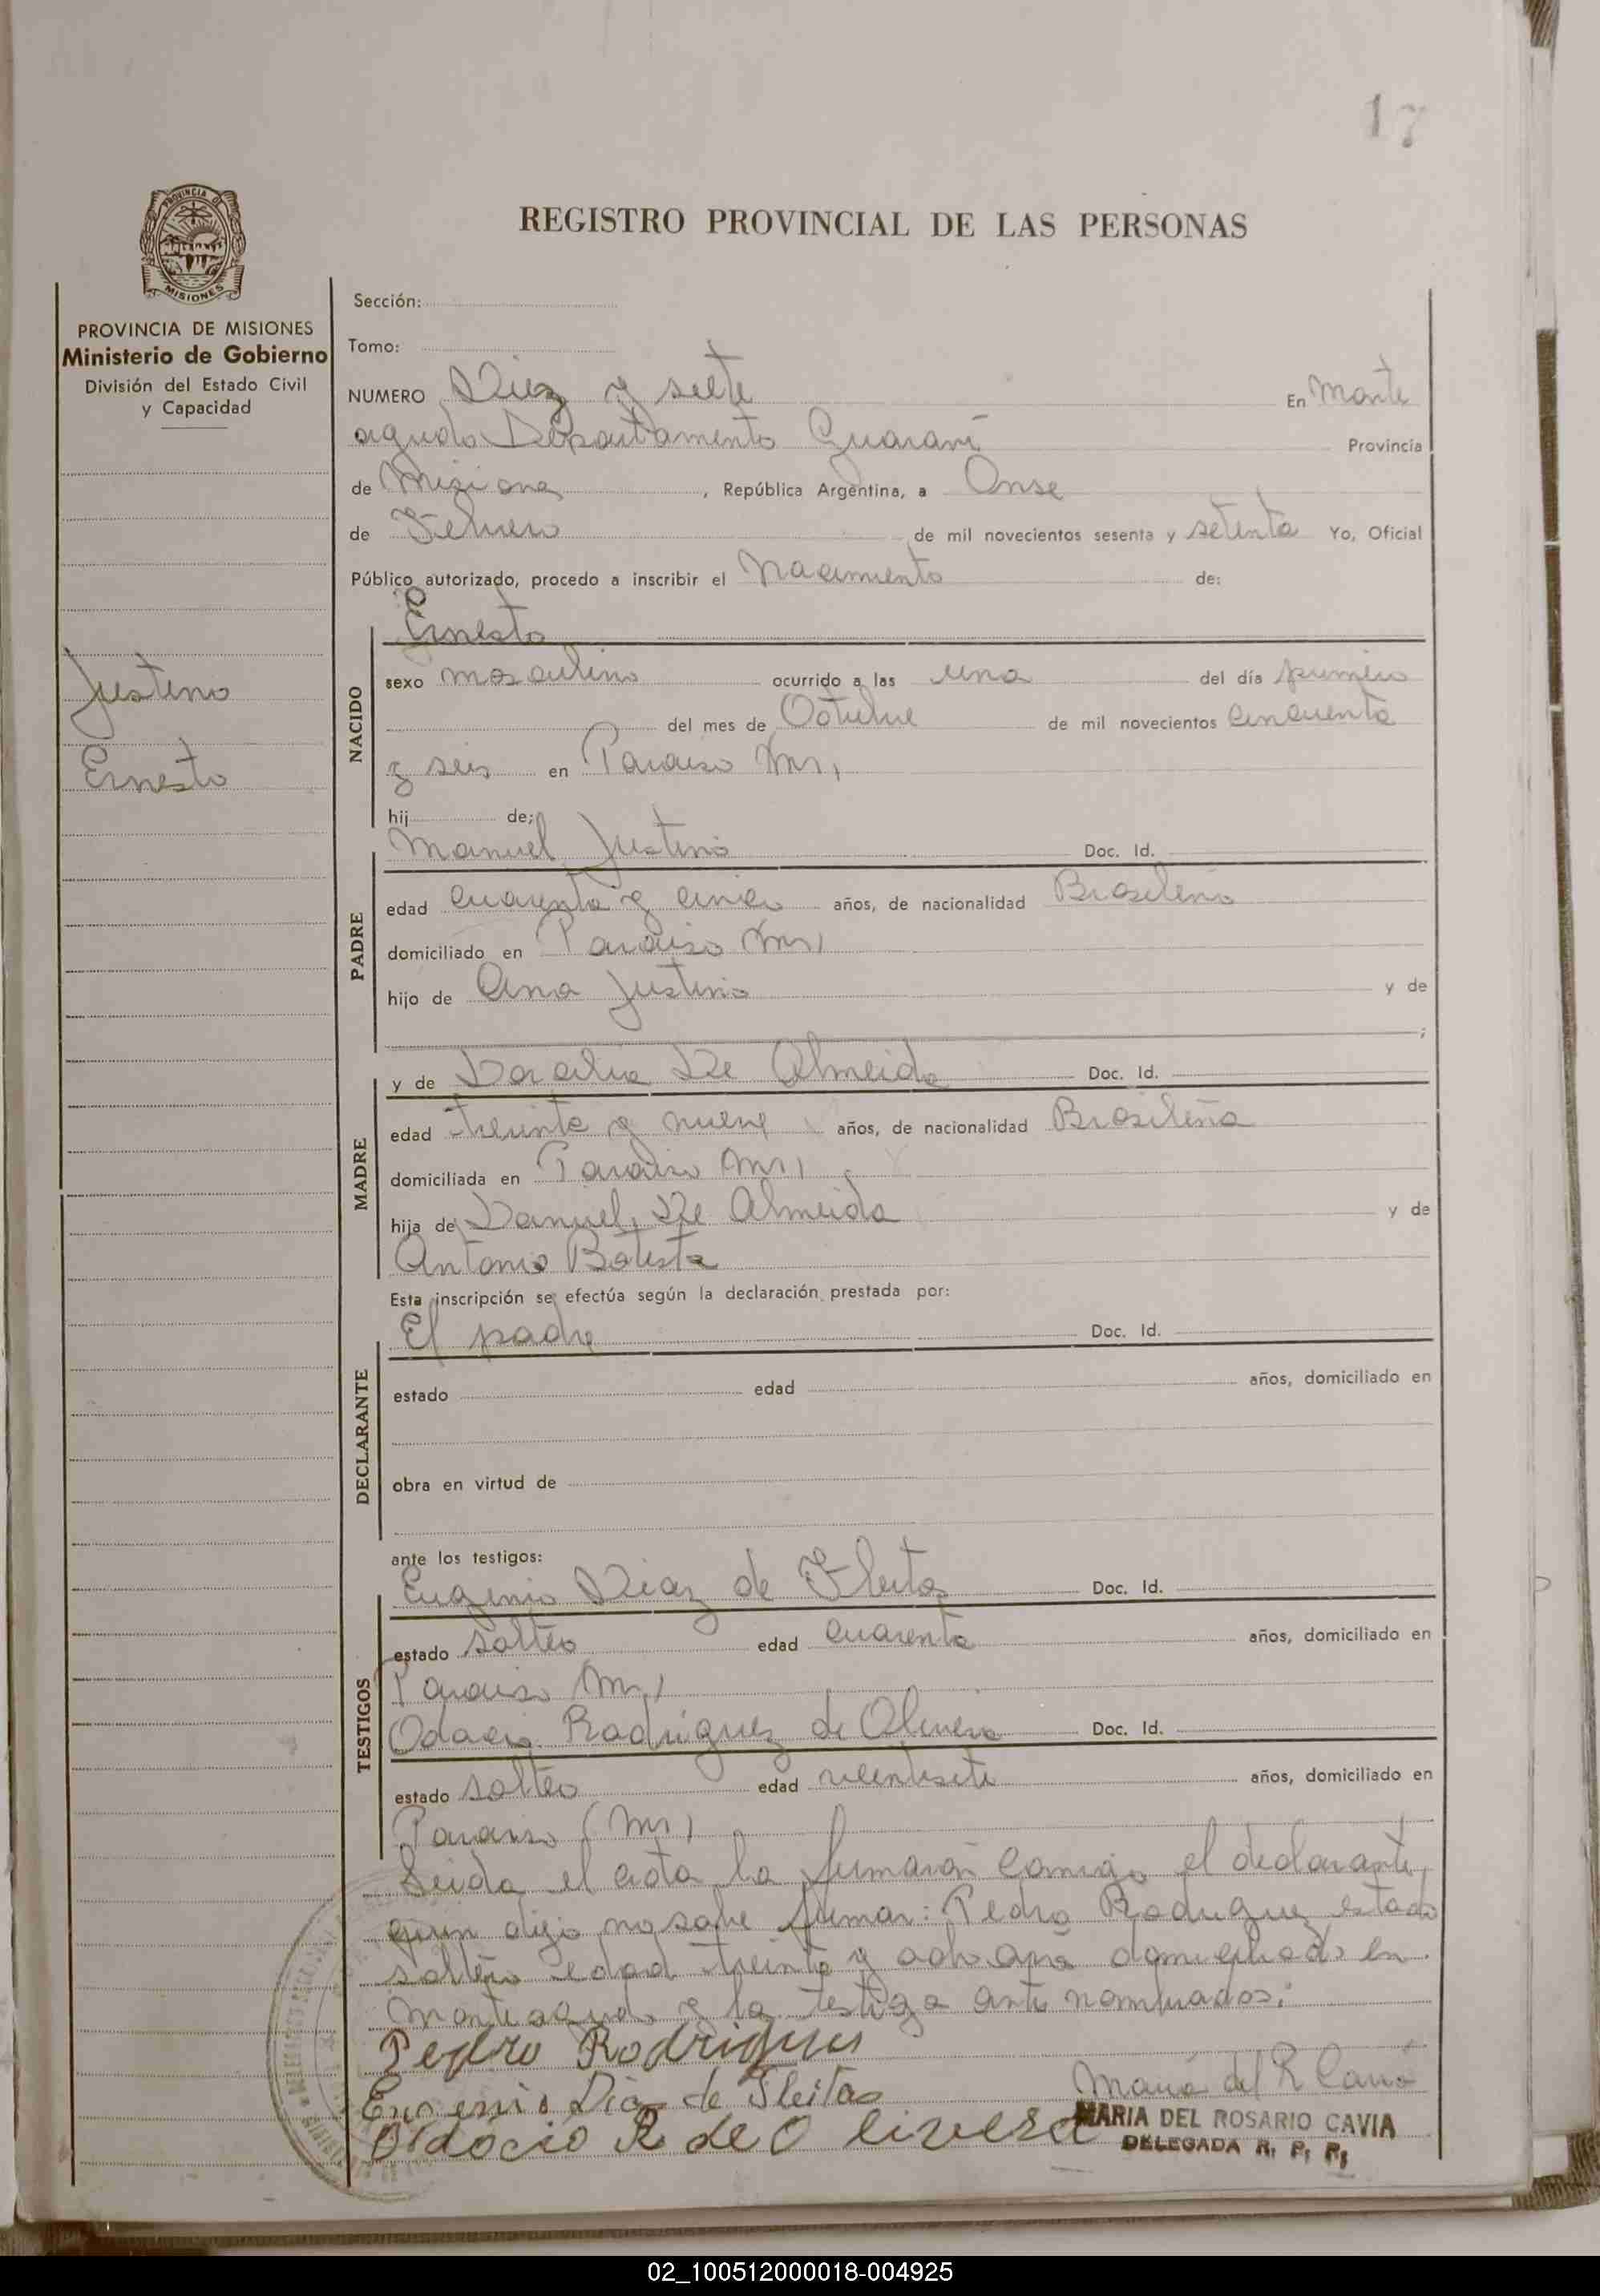 17
PROVINCIA DE
MISIONES
REGISTRO PROVINCIAL DE LAS PERSONAS
PROVINCIA DE MISIONES
Ministerio de Gobierno
División del Estado Civil
y Capacidad
Justino
Ernesto
Sección:
Tomo:
NUMERO Diez y siete En Monte
agudo Departamento Guaraní Provincia
de Misiones, República Argentina, a Onse
de Febrero de mil novecientos sesenta y setenta Yo, Oficial
Público autorizado, procedo a inscribir el Nacimiento de:
Ernesto
NACIDO
sexo masculino ocurrido a las una del día primero
del mes de Octubre de mil novecientos cincuenta
y seis en Paraiso Mns,
hij de;
Manuel Justino Doc. Id.
PADRE
edad cuarenta y cinco años, de nacionalidad Brasileño
domiciliado en Paraiso Mns,
hijo de Ana Justino y de
;
y de Doralia De Almeida Doc. Id.
MADRE
edad treinta y nueve años, de nacionalidad Brasileña
domiciliada en Paraiso Mns,
hija de Danuel De Almeida y de
Antonio Batista
Esta inscripción se efectúa según la declaración prestada por:
El padre Doc. Id.
DECLARANTE
estado edad años, domiciliado en
obra en virtud de
ante los testigos:
Eugenio Diaz de Fleitas Doc. Id.
TESTIGOS
estado solteo edad cuarenta años, domiciliado en
Paraiso Mns,
Odacio Rodriguez de Olivera Doc. Id.
estado solteo edad veintisete años, domiciliado en
Paraiso (Mns)
Leida el acta la firmarón comigo el declarante,
quin dijo no sabe firmar: Pedro Rodriguez estado
soltero edad treinta y ocho años domiciliado en
Monteagudo y los testigos ante nombrados:
Pedro Rodrigues
Eugenio Dias de Fleitas
Oldócio R de Olivera
Maria del R Cavia
MARIA DEL ROSARIO CAVIA
DELEGADA R. P. P.
02_100512000018-004925